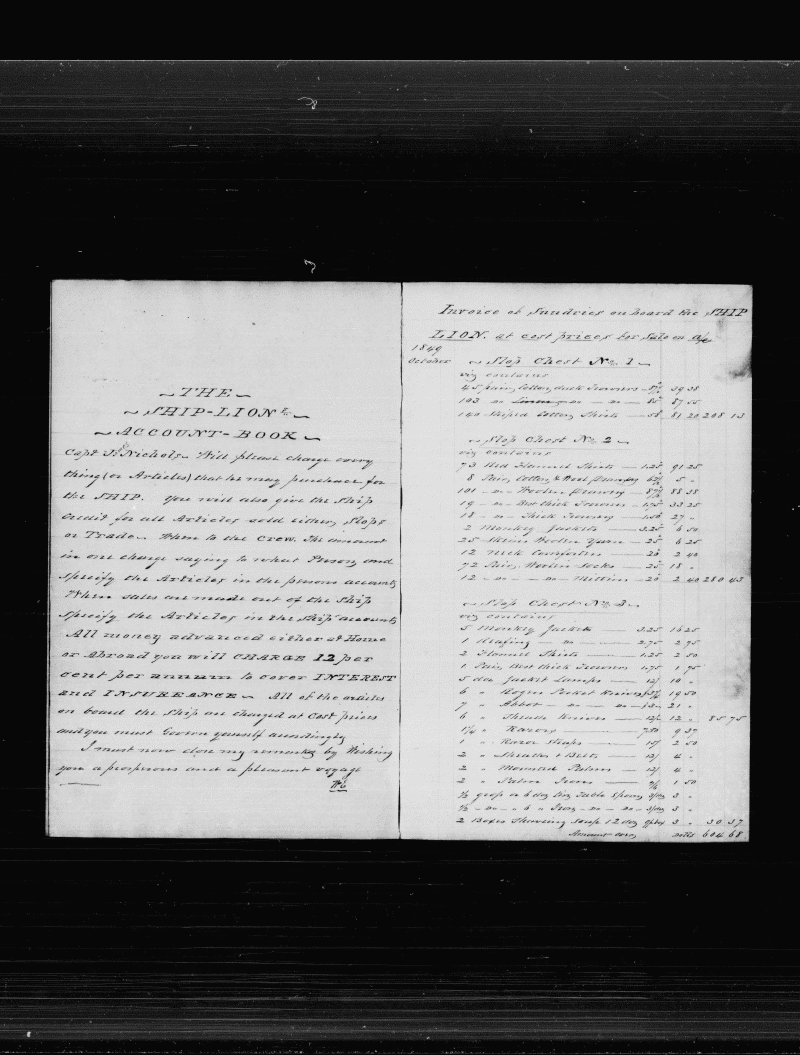 THE
SHIP-LION
ACCOUNT-BOOK
Capt. Nichols Will please charge every
thing (or Articles) that he may purchase for
the SHIP. you will also give the Ship
Credit for all Articles sold either, Slops
or Trade. When to the Crew. The amount
in one charge saying to what Person, and
specify the Articles in the persons accounts
When sales are made out of the Ship
specify the Articles in the Ship accounts
All money advanced either at Home
or Abroad you will CHARGE 12 per
cent per annum to cover INTEREST
and INSUREANCE All of the articles
on board the Ship are charged at Cost prices
and you must Govern yourself accordingly
I must now close my remarks by Wishing
you a prosperous and a pleasant voyage
Invoice of Sundries on board the SHIP
LION. at cost prices for Sale on
1849
October Slop Chest No. 1
viz contains
45 pair, Cotton, duck Trowsers 39 38
103 do do 85 87 55
140 Striped Cotton Shirts 58 81 20 208 13
Slop Chest No. 2
viz contains
73 Red Flannel Shirts 1.25 91 25
8 Pair, Cotton, & Wool 5 "
101 do Woolen Drawers 88 38
19 do thick Trowsers 1.75 33 25
18 do Thick Trowsers 1.50 27 "
2 Monkey Jackets 3.25 6 50
25 Skeins Woolen Yarn 25 6 25
12 Neck Comforters 20 2 40
72 Pair, Woolen Socks 25 18 "
12 do do Mittens 20 2 40 280 43
Slop Chest No. 3
viz contains
5 Monkey Jackets 3.25 16 25
1 Reafing do 2.75 2 75
2 Flannel Shirts 1.25 2 50
1 Pair, Best thick Trowsers 1.75 1 75
5 doz Jacket 12/ 10 "
6 " Rogers Pocket Knives 19 50
7 " do do 21 "
6 " Sheath Knives 12/ 12 " 85 75
1¼ " Razors 7.50 9 37
1 " Razor Straps 15/ 2 50
2 " Sheaths & Belts 12/ 4 "
2 " Mounted Palms 12/ 4 "
2 " Palm Irons 1 50
½ groce or 6 doz Table Spoons 3/doz 3 "
½ do " 6 " do do 3/doz 3 "
2 Boxes Shaving Soap 12 doz 3 " 30 37
Amount dolls 604 68